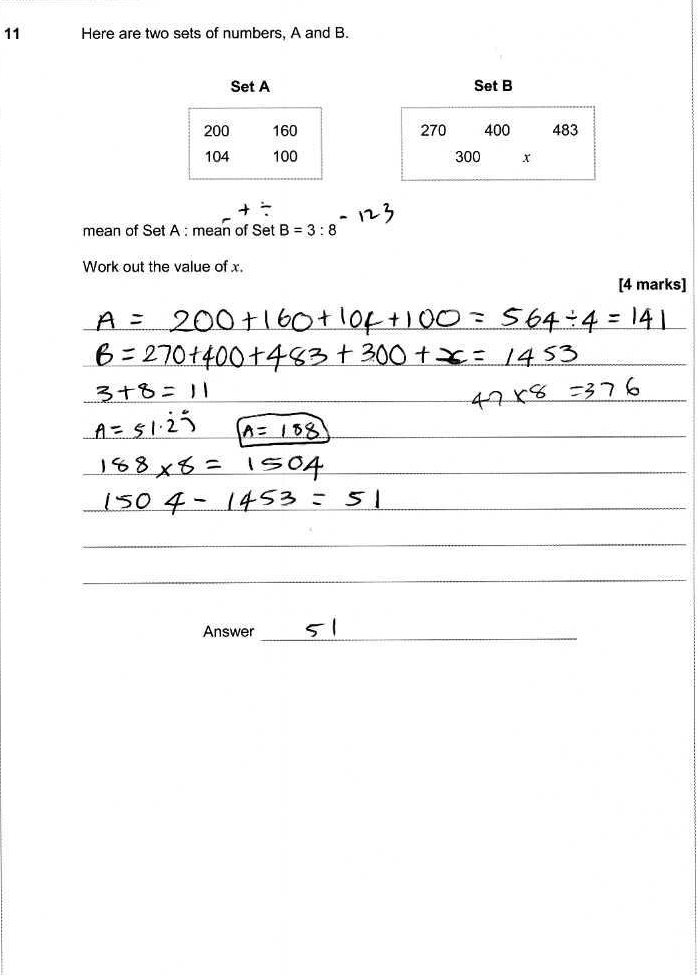 11 Here are two sets of numbers, A and B.
Set A Set B
200 160 270 400 483
104 100 300 x
- + ÷ - 123
mean of Set A : mean of Set B = 3 : 8
Work out the value of x.
[4 marks]
A = 200+160+104+100 = 564÷4 = 141
B = 270+400+483+300+x = 1453
3+8 = 11 47×8 = 376
A = 51.25 A = 188
188×8 = 1504
1504 - 1453 = 51
Answer 51